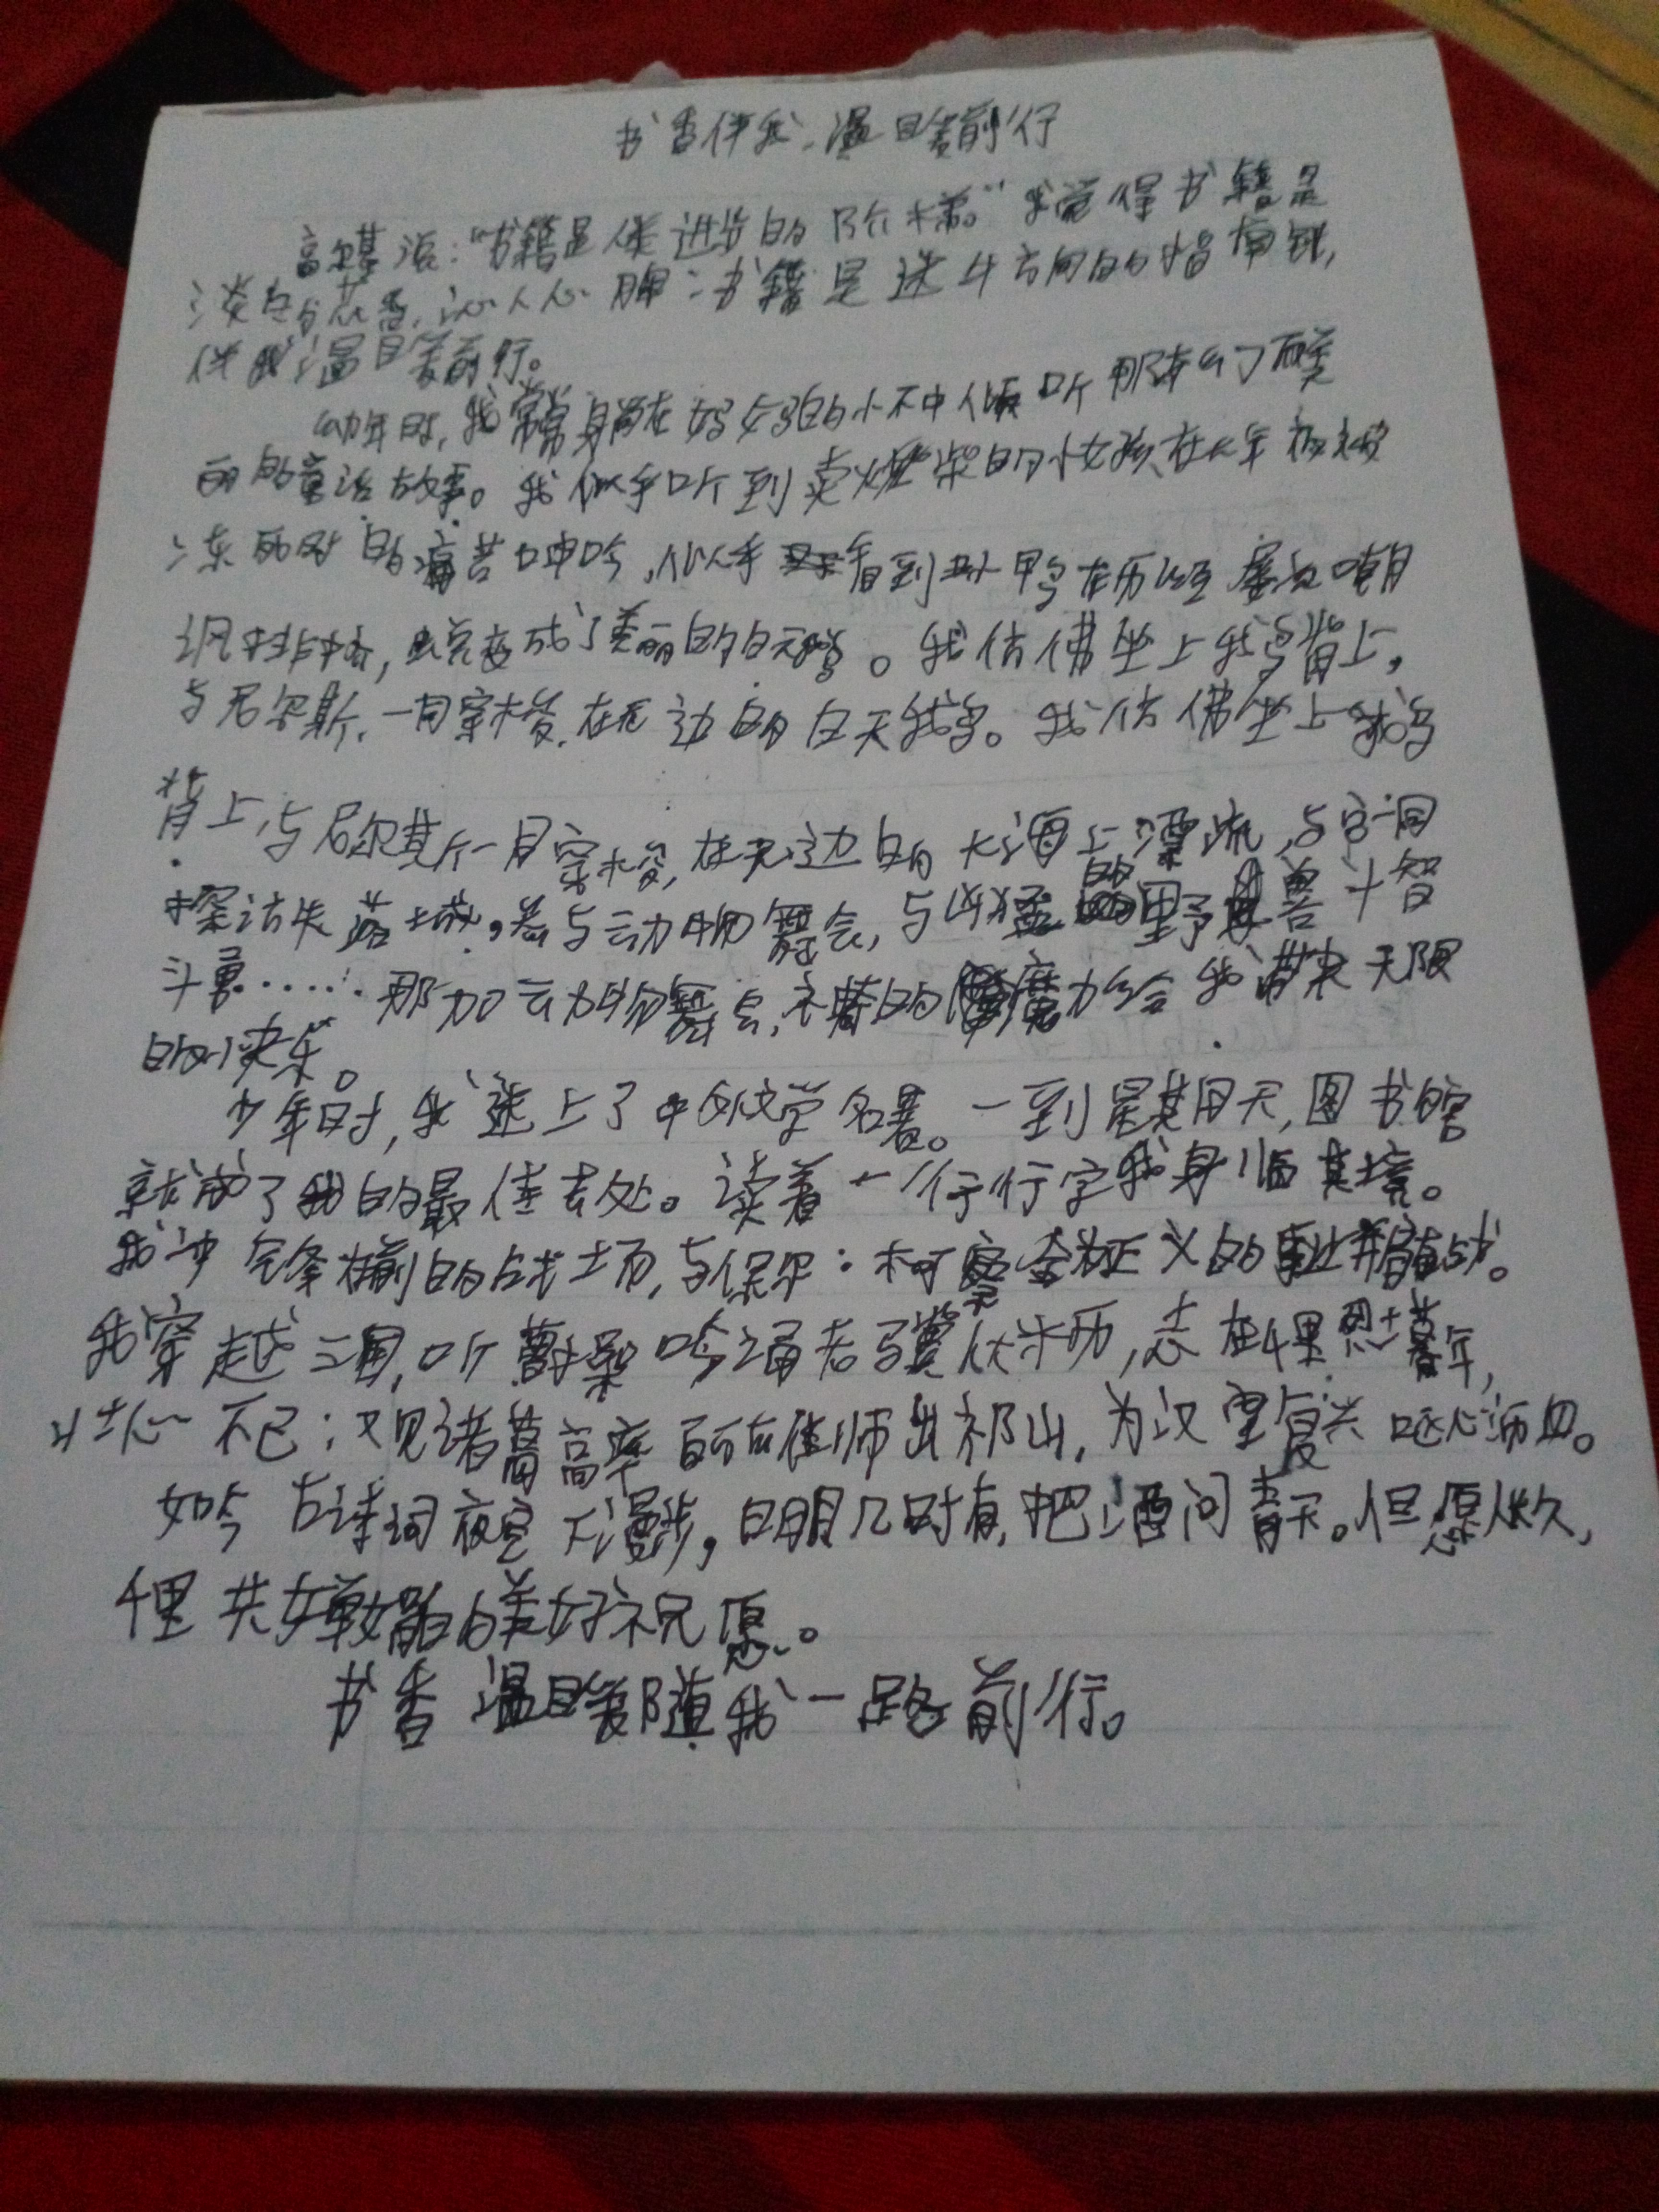 书香伴我,温暖前行
高尔基说:“书籍是人类进步的阶梯。”我觉得书籍是
淡与花香,沁人心脾;书籍是迷斗方向的指南针,
伴我温暖前行。
幼年时,我常常躺在妈妈的小不中倾听那陈幻了而美
丽的童话故事。我似乎听到卖火柴的小女孩在大年被
冻死时的痛苦呻吟,似乎看到丑小鸭在历经屡次嘲
讽排挤,蜕变成了美丽的白天鹅。我仿佛坐上我鸟背上,
与尼尔斯,一同穿梭,在无边的白天我鸟。我仿佛坐上我鸟
背上,与尼尔其斤一同穿梭,在无边的大海上漂流,与它一同
探访失落土城。参与动物舞会,与凶猛的野兽斗智
斗勇……那加动物舞会,的魔力给我带来无限
的快乐。
少年时,我迷上了中外文学名著。一到星期天,图书馆
就成了我的最佳去处。读着一行行字我身临其境。
我冲到的战士场,与保尔·柯察金为正义的事业并肩奋战。
我穿越三国,听曹操吟诵老骥伏枥,志在千里烈士暮年,
壮心不已;又见诸葛高率百万雄师出祁山,为汉室复兴呕心沥血。
如今古诗词夜空下漫步,日明几时有,把酒问青天。但愿人长久,
千里共婵娟的美好祝愿。
书香温暖随我一路前行。